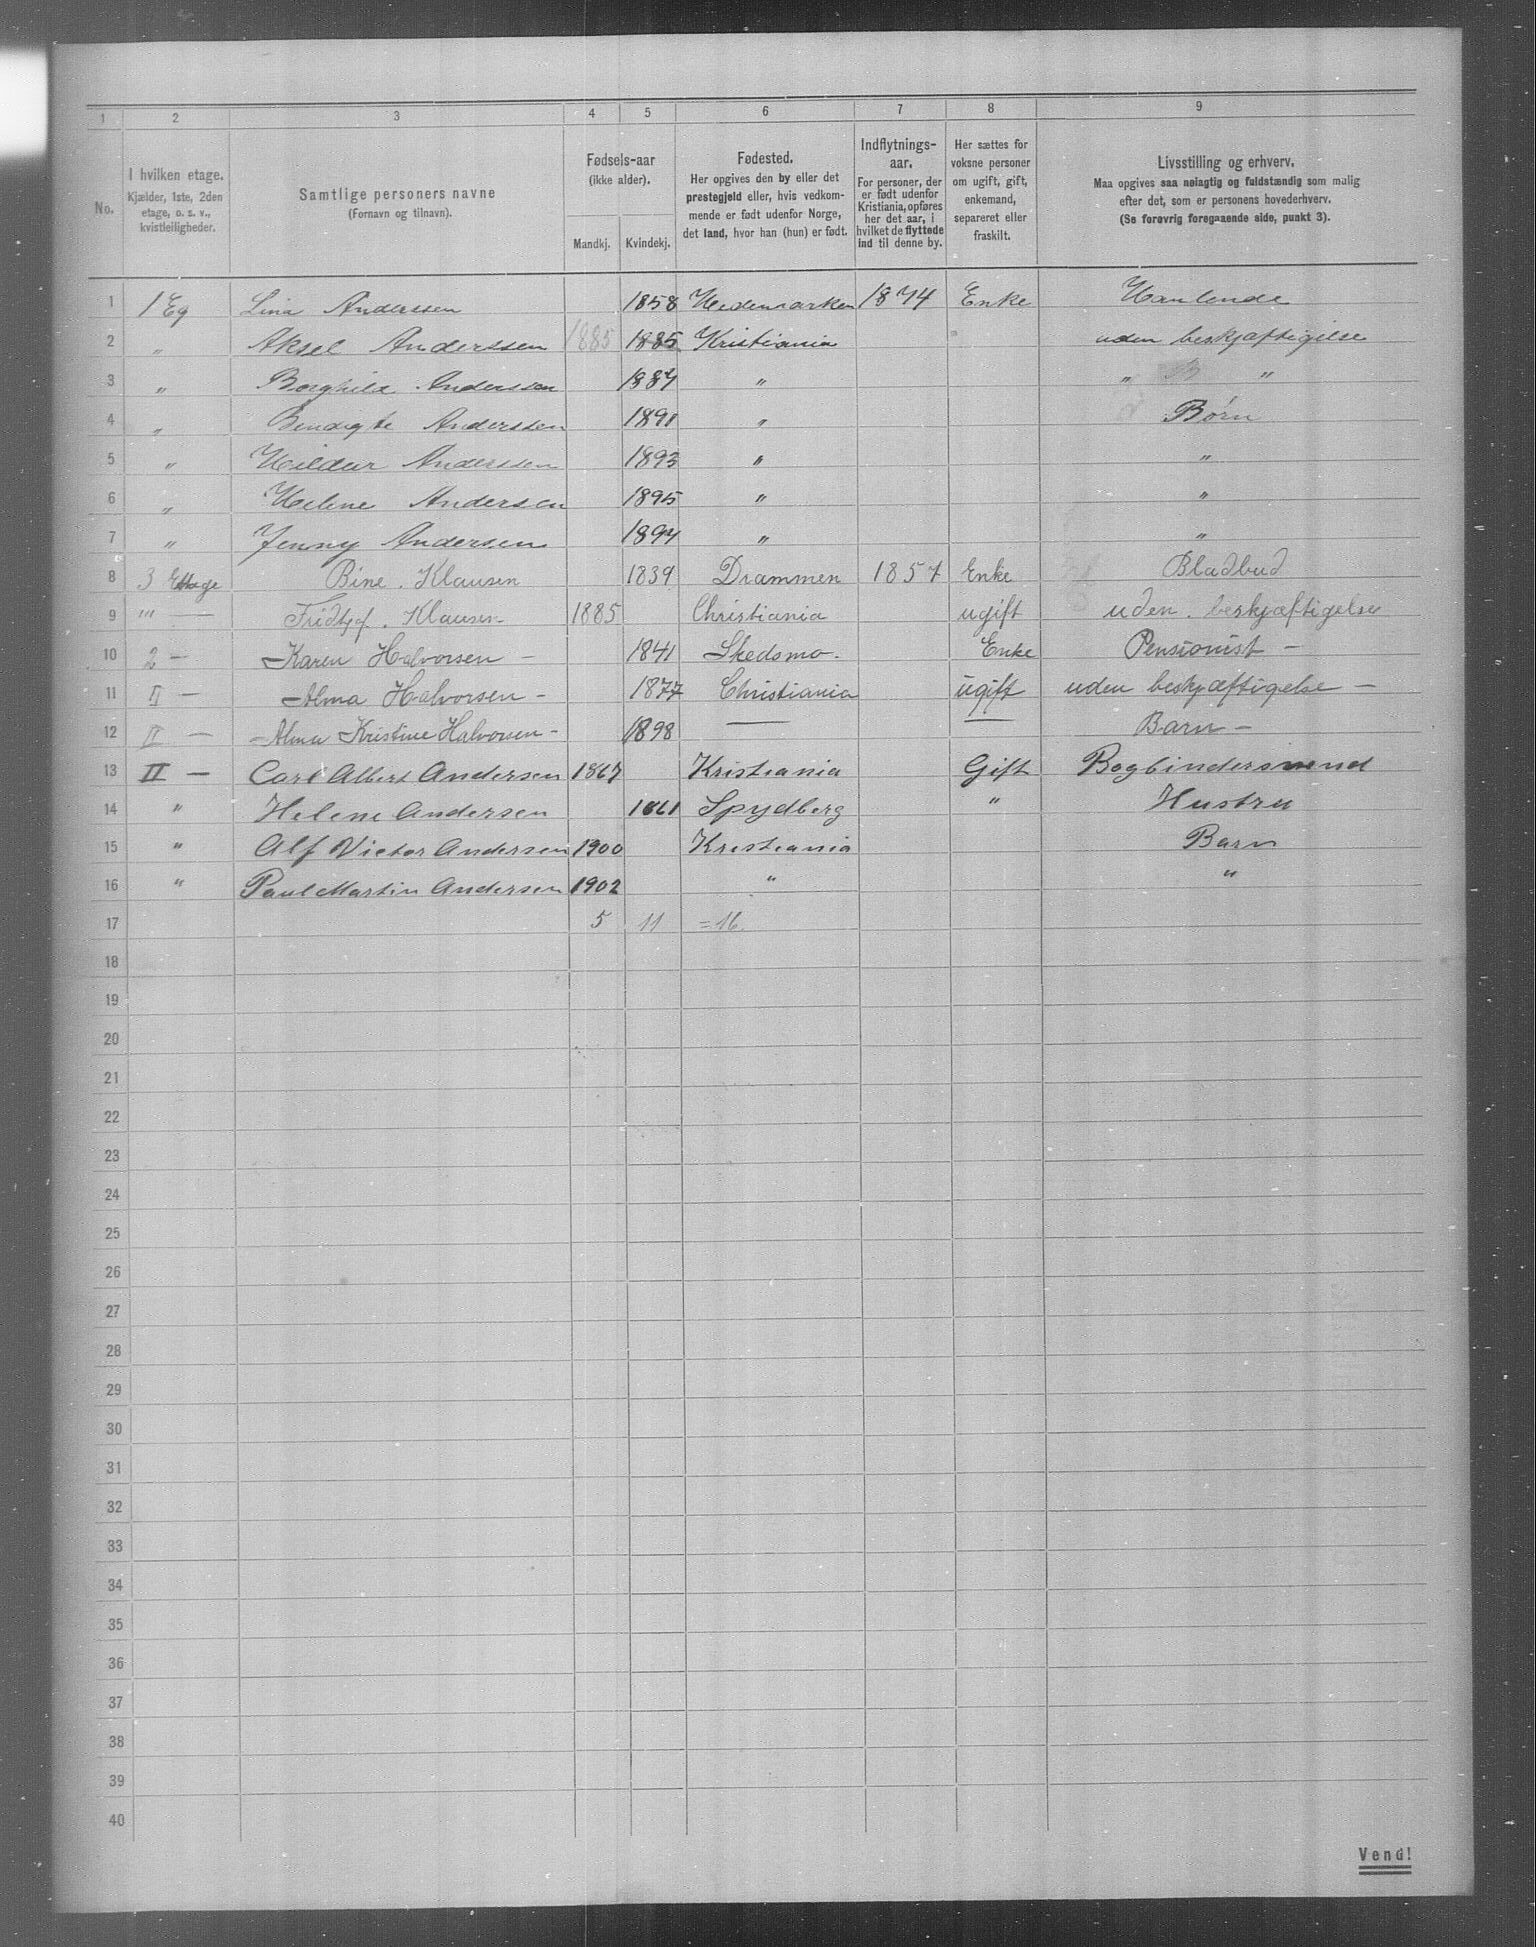 1 2 3 4 5 6 7 8 9
No.
I hvilken etage.
Kjælder, 1ste, 2den
etage, o. s. v.,
kvistleiligheder.
Samtlige personers navne
(Fornavn og tilnavn).
Fødsels-aar
(ikke alder).
Mandkj. Kvindekj.
Fødested.
Her opgives den by eller det
prestegjeld eller, hvis vedkom-
mende er født udenfor Norge,
det land, hvor han (hun) er født.
Indflytnings-
aar.
For personer, der
er født udenfor
Kristiania, opføres
her det aar, i
hvilket de flyttede
ind til denne by.
Her sættes for
voksne personer
om ugift, gift,
enkemand,
separeret eller
fraskilt.
Livsstilling og erhverv.
Maa opgives saa nøiagtig og fuldstændig som mulig
efter det, som er personens hovederhverv.
(Se forøvrig foregaaende side, punkt 3).
1 1 Eg Lina Anderssen 1858 Hedemarken 1874 Enke
2 „ Aksel Anderssen 1885 1885 Kristiania uden beskjæftigelse
3 „ Borghild Anderssen 1887 „ „ „
4 „ Bendigte Anderssen 1891 „ Børn
5 „ Hildur Anderssen 1893 „ „
6 „ Helene Andersen 1895 „ „
7 „ Jenny Andersen 1897 „ „
8 3 Etage Bine. Klausen 1839 Drammen 1857 Enke Bladbud
9 "' — Fridtjof. Klausen 1885 Christiania ugift uden. beskjæftigelse
10 2 — Karen Halvorsen — 1841 Skedsmo. Enke Pensionist —
11 II — Alma Halvorsen — 1877 Christiania ugift uden beskjæftigelse —
12 II — Alma Kristine Halvorsen — 1898 — — Barn —
13 II — Carl Albert Andersen 1867 Kristiania Gift Bogbindersvend
14 " Helene Andersen 1861 Spydberg " Hustru
15 " Alf Victor Andersen 1900 Kristiania Barn
16 " Paul Martin Andersen 1902 " "
17 5 11 = 16.
18
19
20
21
22
23
24
25
26
27
28
29
30
31
32
33
34
35
36
37
38
39
40
Vend!